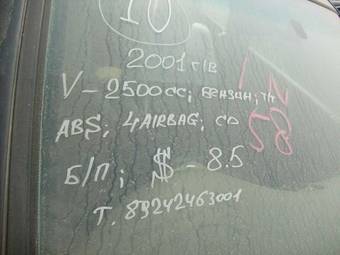 10
2001 г/в
V - 2500 сс; бензин; т/т
ABS; 4 AIRBAG; CD
58
Б/П; $ - 8.5
т. 89242463001